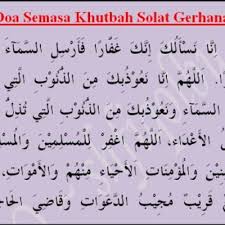 Doa Semasa Khutbah Solat Gerhana
إِنَّا نَسْأَلُكَ إِنَّكَ غَفَّارًا فَأَرْسِلِ السَّمَآءَ
. اَللَّهُمَّ إِنَّا نَعُوْذُبِكَ مِنَ الذُّنُوْبِ الَّتِي
السَّمَآءِ وَنَعُوْذُبِكَ مِنَ الذُّنُوْبِ الَّتِي تُذِلُّ
الأَعْدَاءَ، اَللَّهُمَّ اغْفِرْ لِلْمُسْلِمِيْنَ وَالْمُسْلِ
نِيْنَ وَالْمُؤْمِنَاتِ الأَحْيَاءِ مِنْهُمْ وَالأَمْوَاتِ،
قَرِيْبٌ مُجِيْبُ الدَّعَوَاتِ وَقَاضِيَ الْحَاجَ